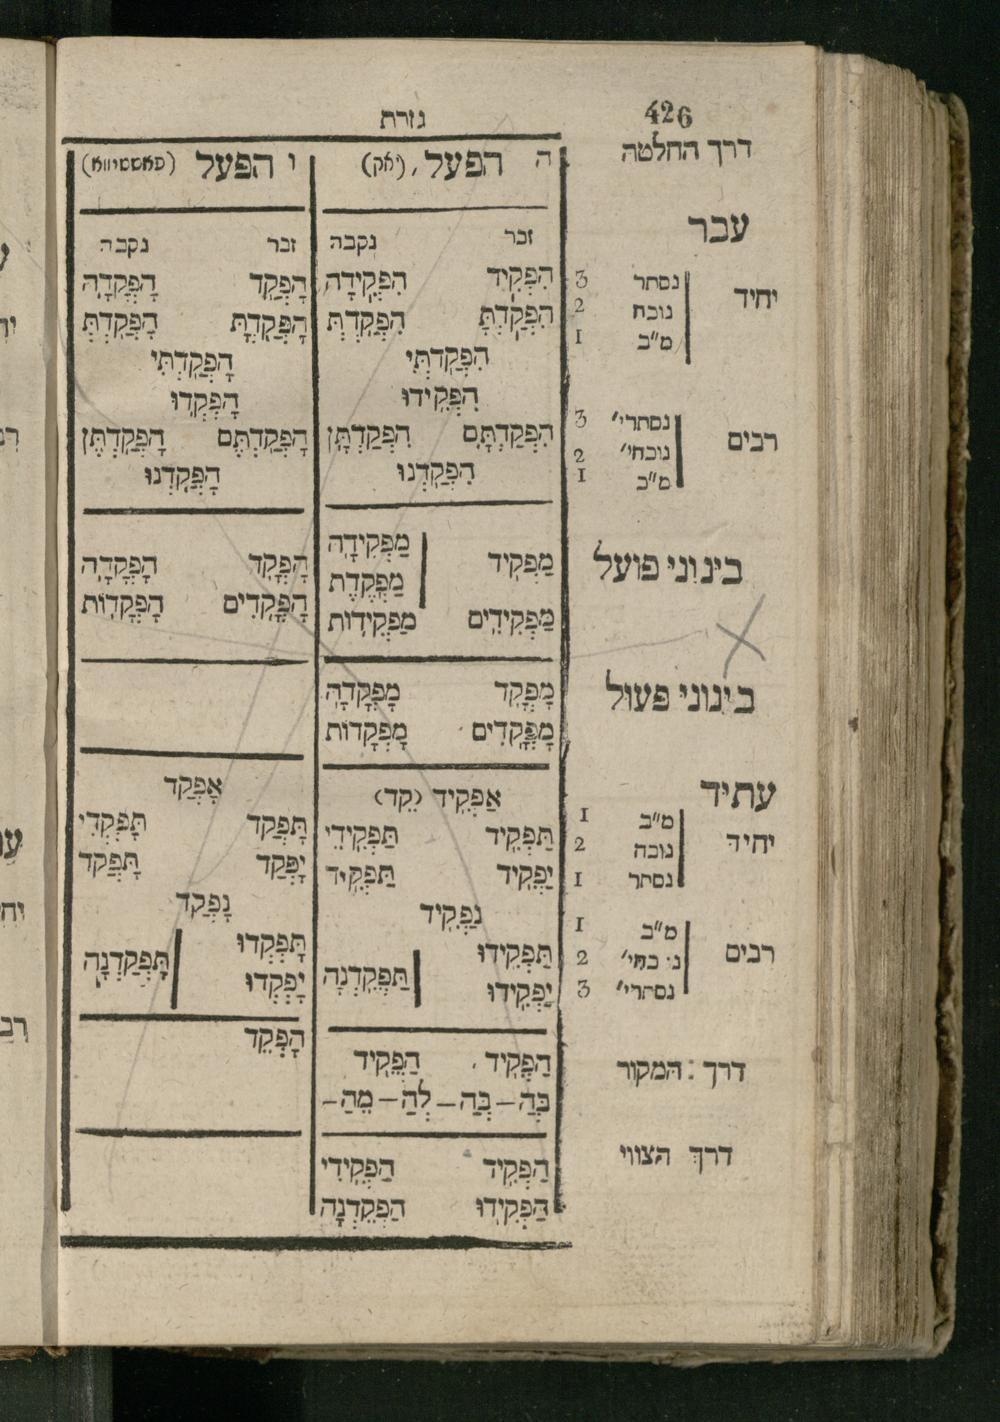 426
גזרת
דרך החלטה
ה הפעל, (יאק)
ו הפעל (פאססיווא)
עבר
זכר נקבה
זכר נקבה
יחיד
נסתר 3
הִפְקִיד הִפְקִידָה
הָפְקַד הָפְקְדָה
נוכח 2
הִפְקַדְתָּ הִפְקַדְתְּ
הָפְקַדְתָּ הָפְקַדְתְּ
מ״ב 1
הִפְקַדְתִּי
הָפְקַדְתִּי
הִפְקִידוּ
הָפְקְדוּ
רבים
נסתרי׳ 3
נוכחי׳ 2
מ״ב 1
הִפְקַדְתֶּם הִפְקַדְתֶּן
הָפְקַדְתֶּם הָפְקַדְתֶּן
הִפְקַדְנוּ
הָפְקַדְנוּ
בינוני פועל
מַפְקִיד מַפְקִידָה
מַפְקֶדֶת
הָפְקָד הָפְקָדָה
מַפְקִידִים מַפְקִידוֹת
הָפְקָדִים הָפְקָדוֹת
בינוני פעול
מָפְקָד מָפְקָדָה
מָפְקָדִים מָפְקָדוֹת
עתיד
אַפְקִיד (קֵד)
אָפְקַד
יחיד
מ״ב 1
נוכח 2
נסתר 1
תַּפְקִיד תַּפְקִידִי
תָּפְקַד תָּפְקְדִי
יַפְקִיד תַּפְקִיד
יָפְקַד תָּפְקַד
נַפְקִיד
נָפְקַד
רבים
מ״ב 1
2
נסתרי׳ 3
תַּפְקִידוּ
יַפְקִידוּ
תַּפְקֵדְנָה
תָּפְקְדוּ
יָפְקְדוּ
תָּפְקַדְנָה
דרך המקור
הַפְקִיד הַפְקִיד
הָפְקֵד
בְּהַ – כְּהַ – לְהַ – מֵהַ –
דרך הצווי
הַפְקִיד הַפְקִידִי
הַפְקִידוּ הַפְקֵדְנָה